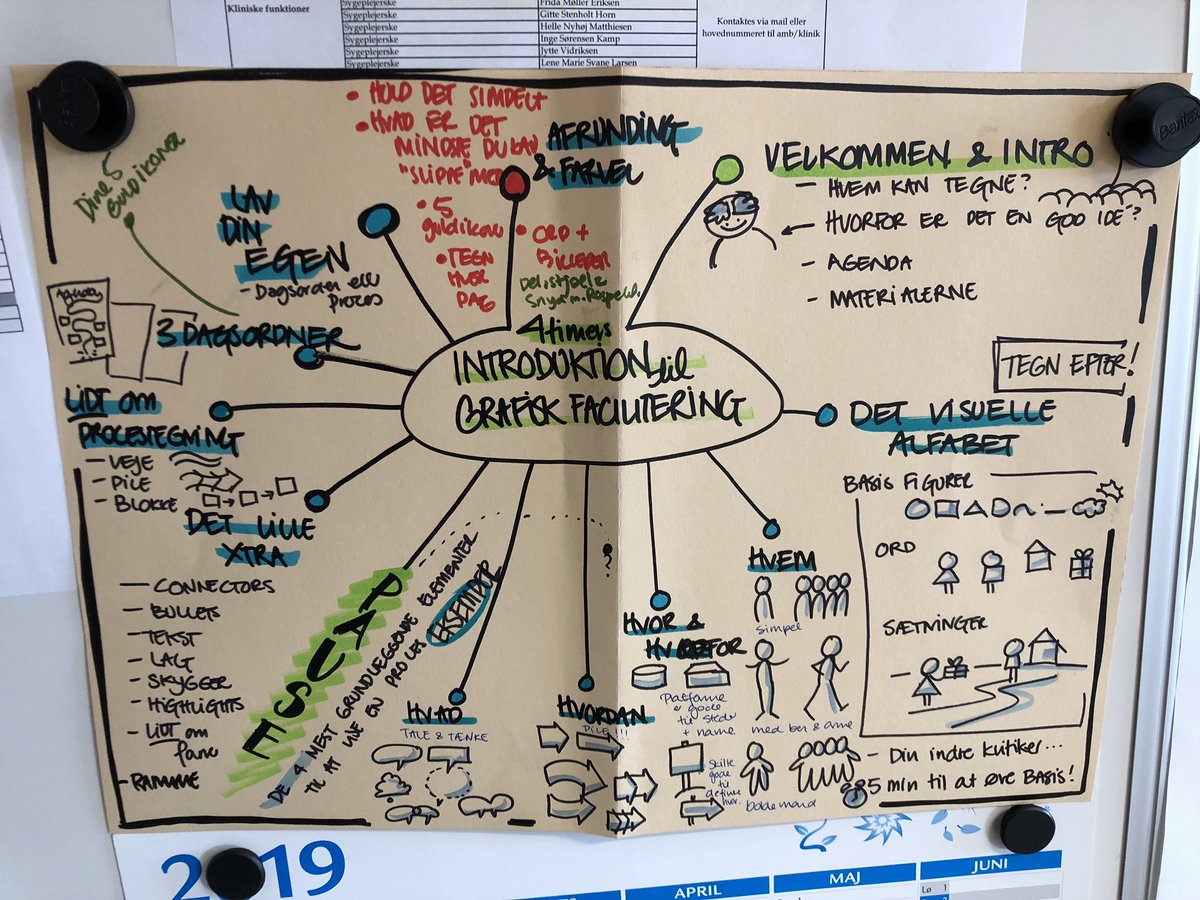 Kliniske funktioner
Sygeplejerske
Frida Møller Eriksen
Sygeplejerske
Gitte Stenholt Horn
Sygeplejerske
Helle Nyhøj Matthiesen
Sygeplejerske
Inge Sørensen Kamp
Sygeplejerske
Jytte Vidriksen
Sygeplejerske
Lene Marie Svane Larsen
Kontaktes via mail eller
hovednummeret til amb/klinik
4 timers
INTRODUKTION til
GRAFISK FACILITERING
VELKOMMEN & INTRO
- HVEM KAN TEGNE?
HVORFOR ER DET EN GOD IDE?
- AGENDA
- MATERIALERNE
TEGN EFTER!
DET VISUELLE
ALFABET
BASIS FIGURER
ORD
SÆTNINGER
- Din indre kritiker...
85 min til at øve BASIS!
HVEM
simpel
med ben & arme
HVOR &
HVORFOR
Platforme
er gode
til steder
+ navne
Skilte
gode
til
HVORDAN
PILE!!!
?
HVAD
TALE & TÆNKE
DE 4 MEST GRUNDLÆGGENDE ELEMENTER
TIL AT LAVE EN PROCES
EKSEMPLER
PAUSE
DET LILLE
XTRA
- CONNECTORS
- BULLETS
- TEKST
- LAGT
- SKYGGER
- HIGHLIGHTS
- LIDT om
farve
- RAMME
LIDT om
PROCESTEGNING
- VEJE
- PILE
- BLOKKE
3 DAGSORDNER
Agenda
LAV
DIN
EGEN
- Dagsorden eller
proces
Dine 5
Guldikoner
AFRUNDING
& FARVEL
• HOLD DET SIMPELT
• HVAD ER DET
MINDSTE DU KAN
"SLIPPE" MED
• 5
guldikoner
• TEGN
HVER
DAG
• ORD +
BILLEDER
2019
APRIL
MAJ
JUNI
Lø 1